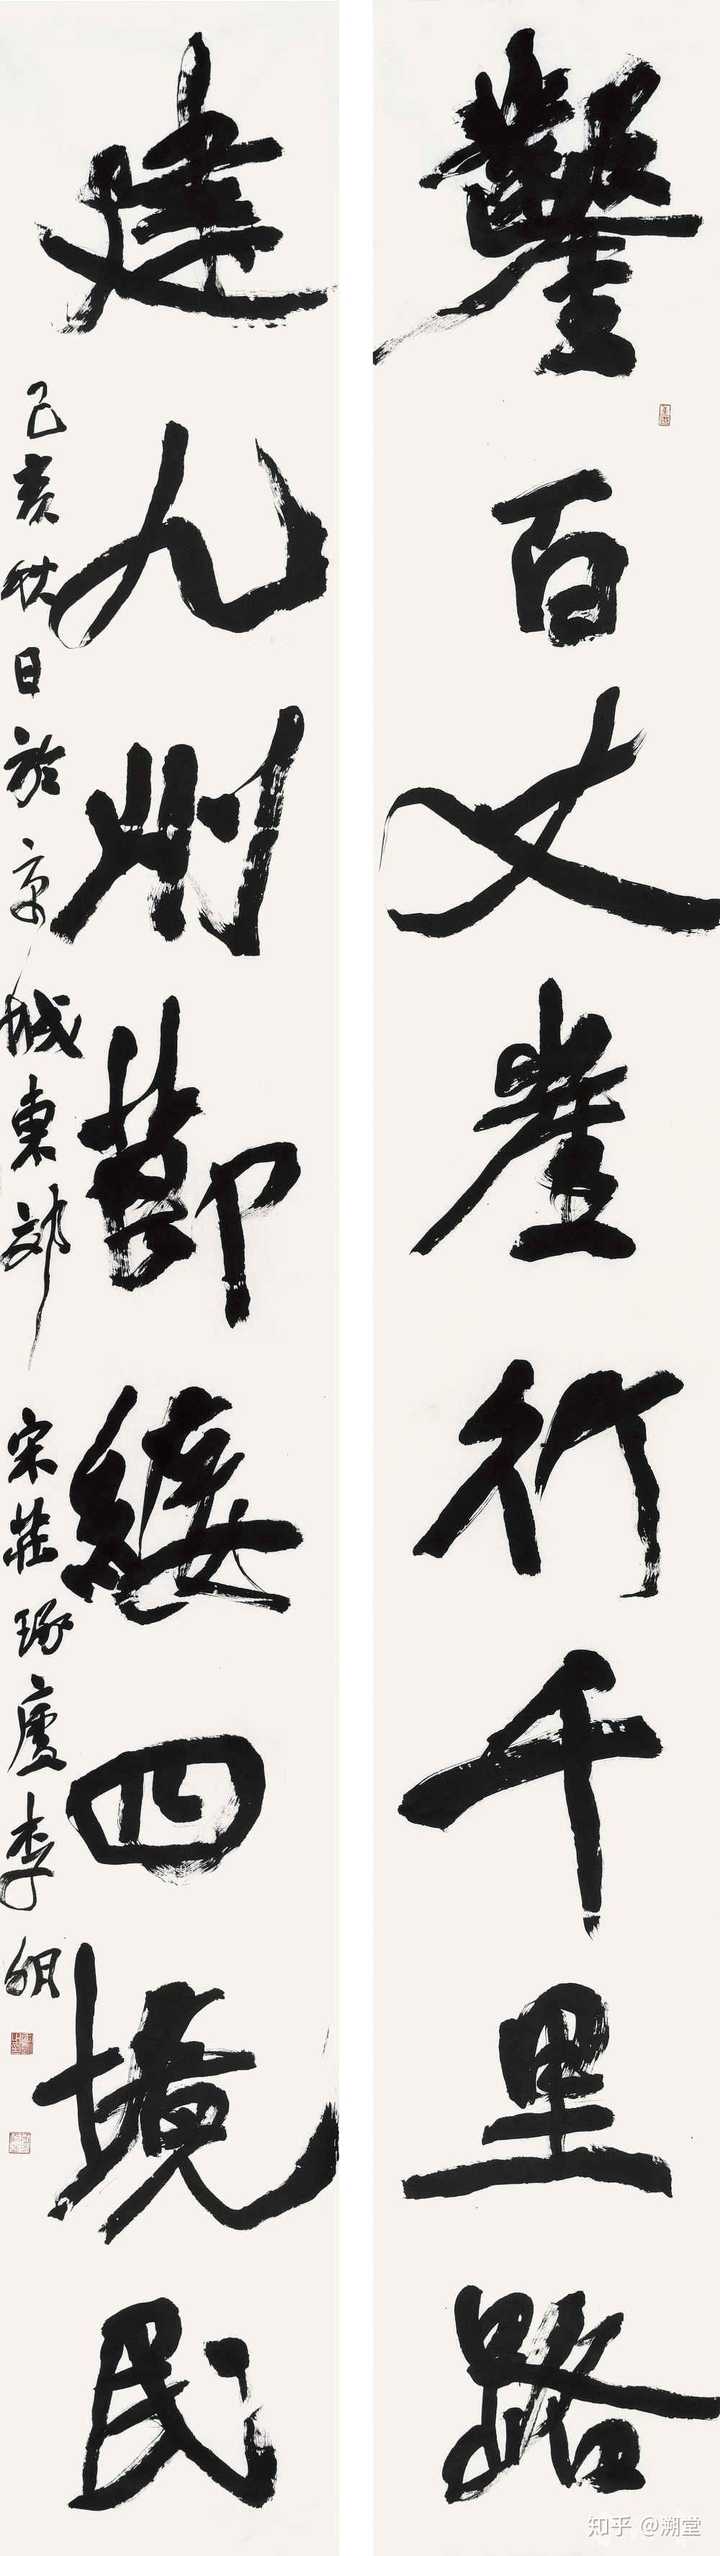 鑿百丈崖行千里路
建九州節綏四境民
己亥秋日於京城東郊
宋莊琢廬李明
知乎 @溯堂